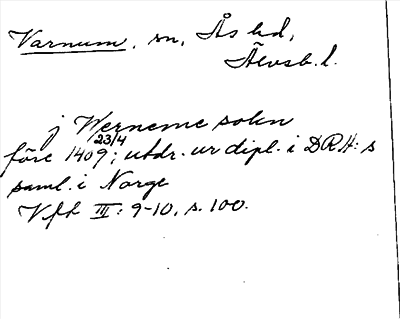 Varnum, sn, Ås hd,
Älvsb. l.
j Werneme sokn
23/4
före 1409; utdr. ur dipl. i DRH:s
saml. i Norge
Vfh III: 9-10, s. 100.